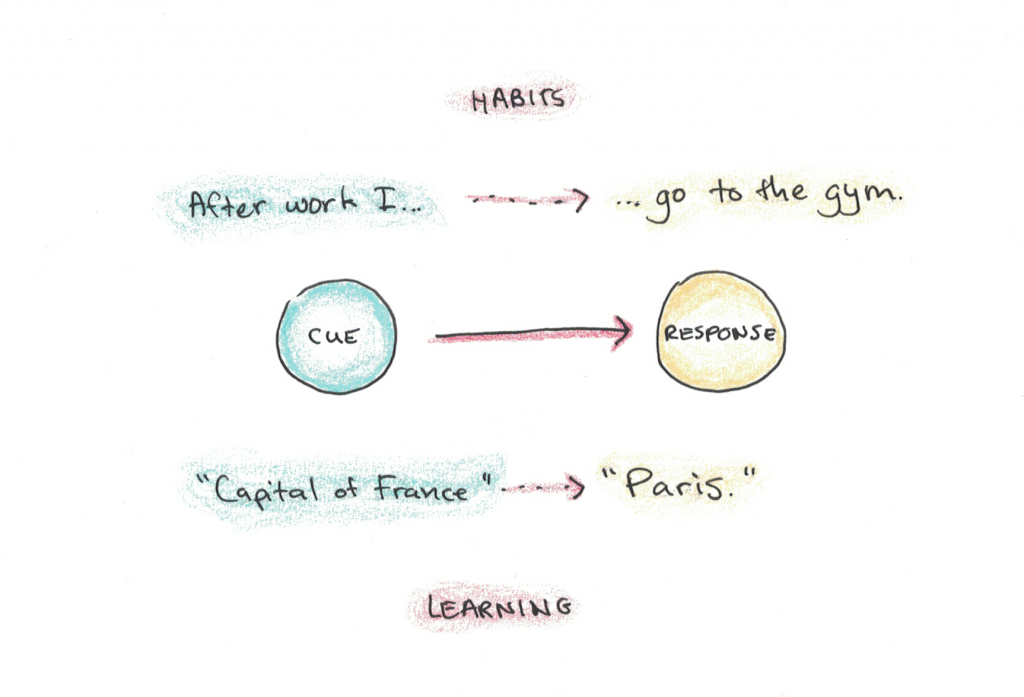 HABITS
After work I... ...go to the gym.
CUE RESPONSE
"Capital of France" "Paris."
LEARNING